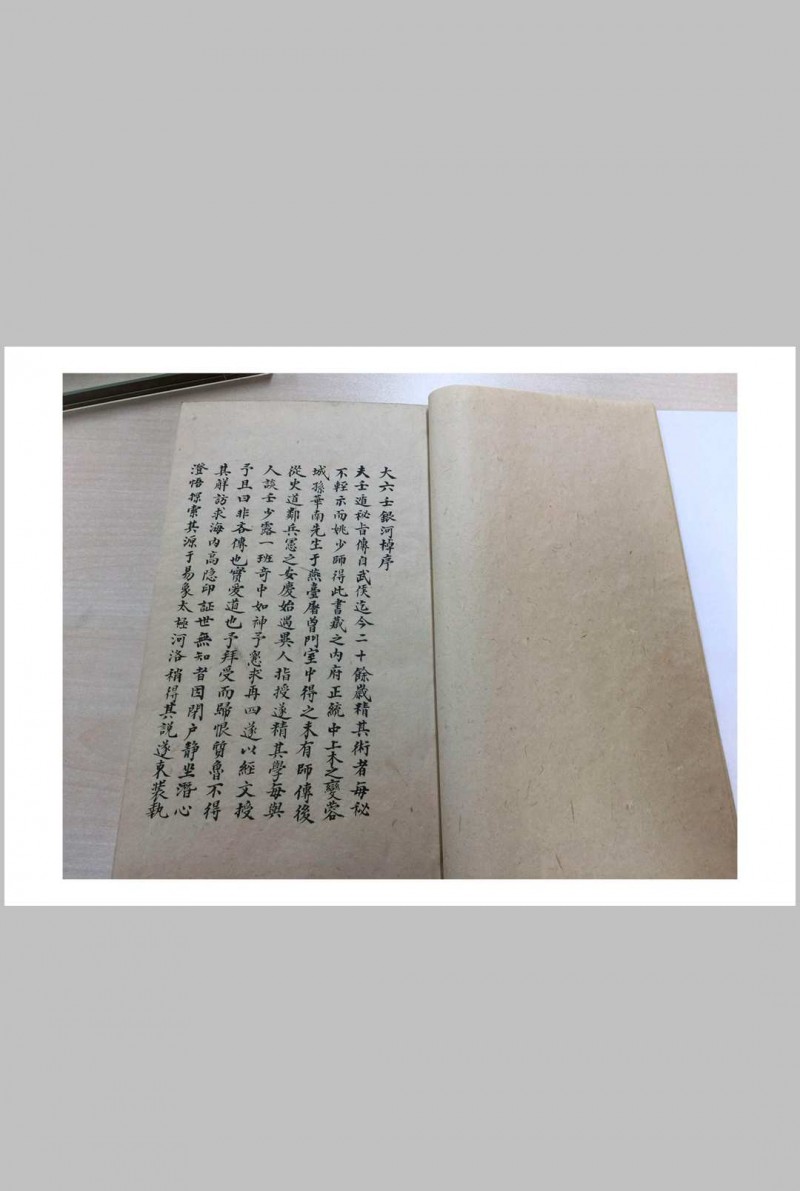 大六壬銀河棹序
夫壬遁秘旨傳自武侯迄今二十餘歲精其術者每秘
不輕示而姚少師得此書藏之内府正統中土木之變蓉
城孫華南先生于燕臺屠曾門室中得之未有師傳後
從火道鄰兵憲之安慶始遇異人指授遂精其學每與
人談壬少露一班奇中如神予懇求再四遂以經文授
予且曰非吝傳也寶愛道也予拜受而歸恨質魯不得
其解訪求海内高隐印証世無知者因閉户靜坐潛心
澄悟探索其源于易象太極河洛稍得其説遂束裝執